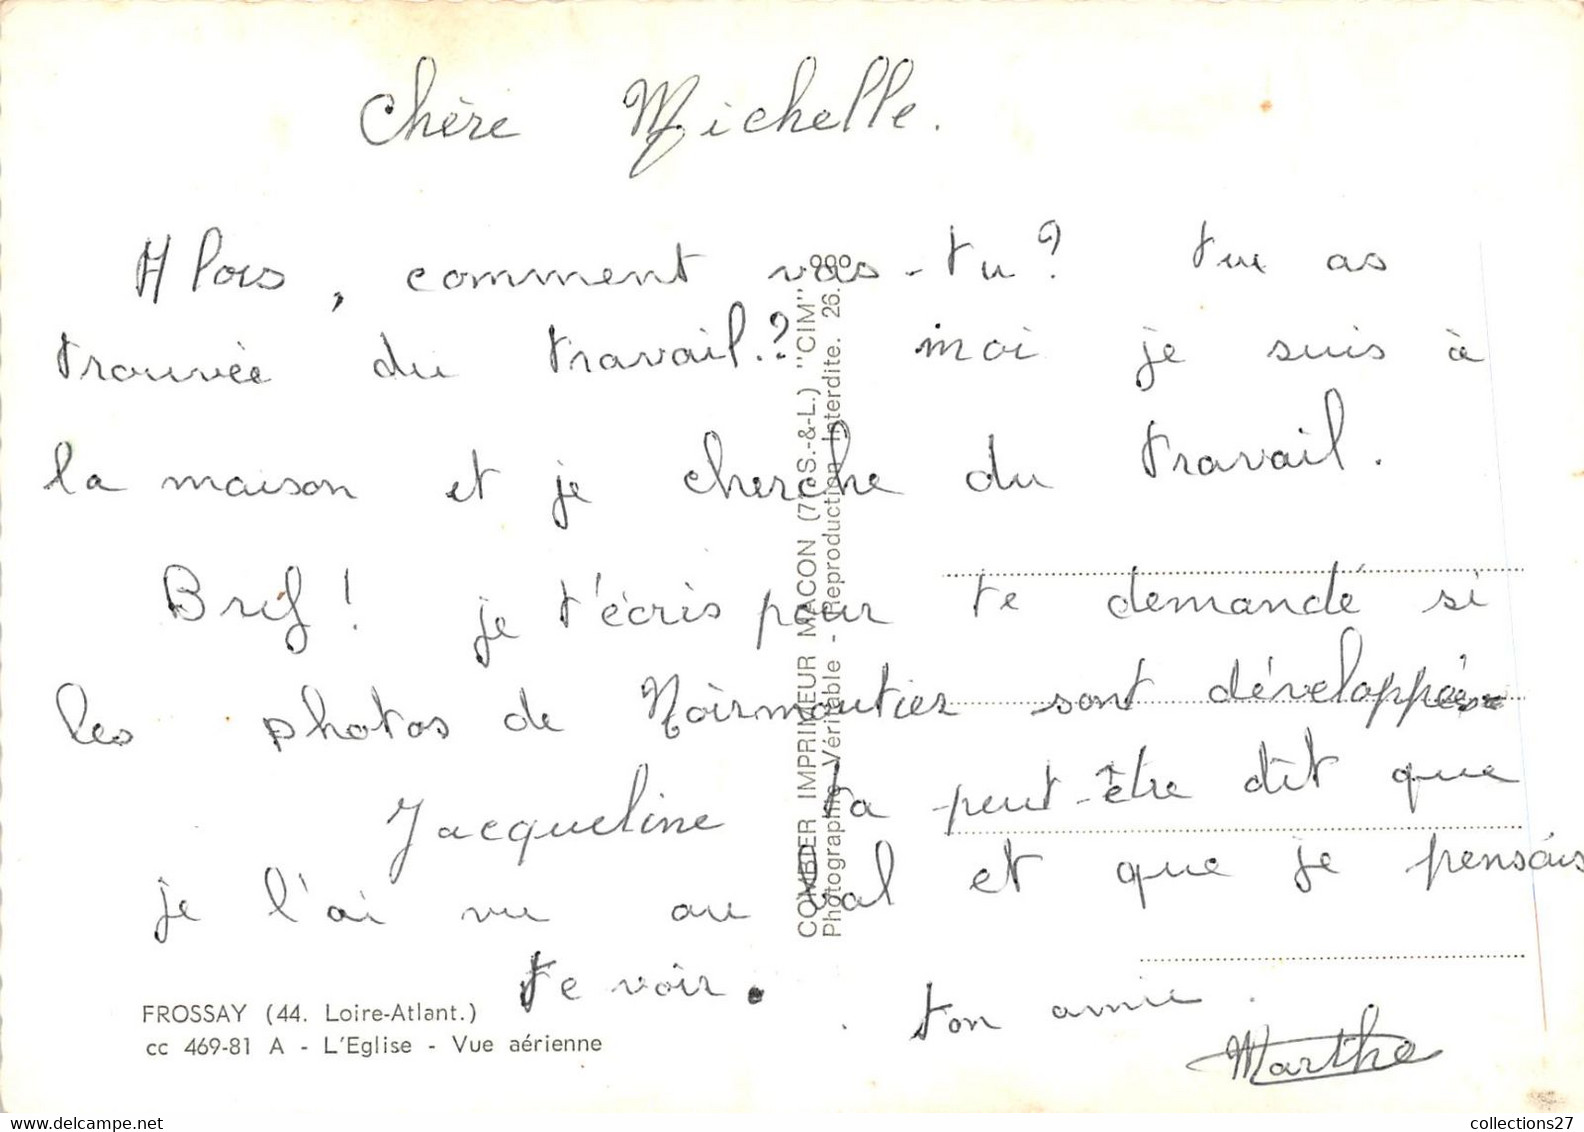 Chère Michelle.
Alors, comment vas-tu? tu as
trouvée du travail.? moi je suis à
la maison et je cherche du travail.
Bref! je t'écris pour te demandé si
les photos de Noirmoutier sont développées
Jacqueline ta peut-être dît que
je l'ai vu au val et que je pensais
te voir. ton amie.
Marthe
FROSSAY (44. Loire-Atlant.)
cc 469-81 A - L'Eglise - Vue aérienne
COMBIER IMPRIMEUR MACON (71 S.-&-L.) "CIM"
Photographie Véritable - Reproduction Interdite. 26.
collections27